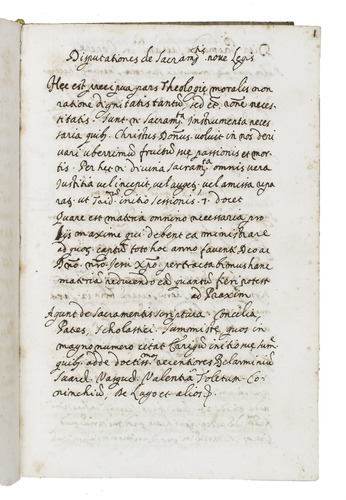 1
Disputationes de Sacramtis noue Legis
Hec est precipua pars Theologie moralis non
ratione dignitatis tantũ, sed et rõne neces-
sitatis. Sunt n. Sacramta Instrumenta neces
saria quib. Christus Dñus voluit in nos deri
vari uberrimũ fructũ sue passionis et mor-
tis. Per hec n. divina Sacramta omnis vera
Justitia vel incepit, vel auget, vel amissa repa
ratur, ut Trid. initio sessionis 7. docet
Quare est materia omnino necessaria pro
ijs maxime qui debent ea ministrare
ad quos toto hoc anno favente Deo ac
Dño. nro. Jesu Xpo. pertractabimus hanc
materiã reducendo eã quantũ fieri potest
ad Praxim
Agunt de Sacramentis scriptura Concilia,
Patres, Scholastici, Summiste, quos in
magno numero citat initio sue
quib. adde doctissmos recentiores Belarminũ
Suared. Vasqued. Valentiã Toletum Co-
ninchiũ, de Lugo et alios